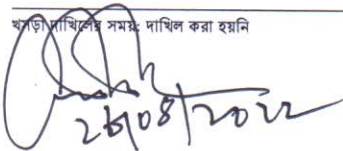 খসড়া দাখিলের সময়: দাখিল করা হয়নি
/08/2022